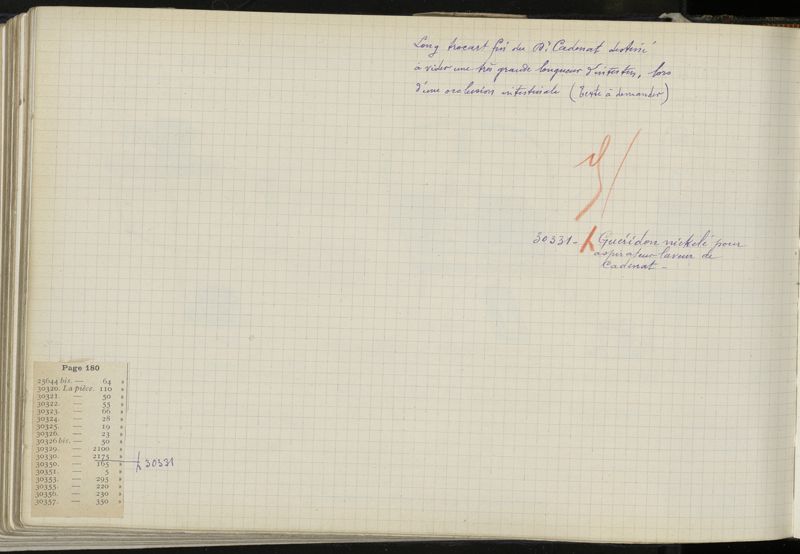 Long trocart fin du Dr Cadenat destiné
à vider une très grande longueur d'intestin, lors
d'une occlusion intestinale (Texte à demander)
30331 - Guéridon nickelé pour
aspirateur laveur de
Cadenat -
Page 180
25644 bis. — 64 »
30320. La pièce. 110 »
30321. — 50 »
30322. — 55 »
30323. — 66 »
30324. — 28 »
30325. — 19 »
30326. — 23 »
30326 bis. — 50 »
30329. — 2100 »
30330. — 2175 »
30350. — 165 »
30351. — 5 »
30353. — 295 »
30355. — 220 »
30356. — 230 »
30357. — 350 »
30331